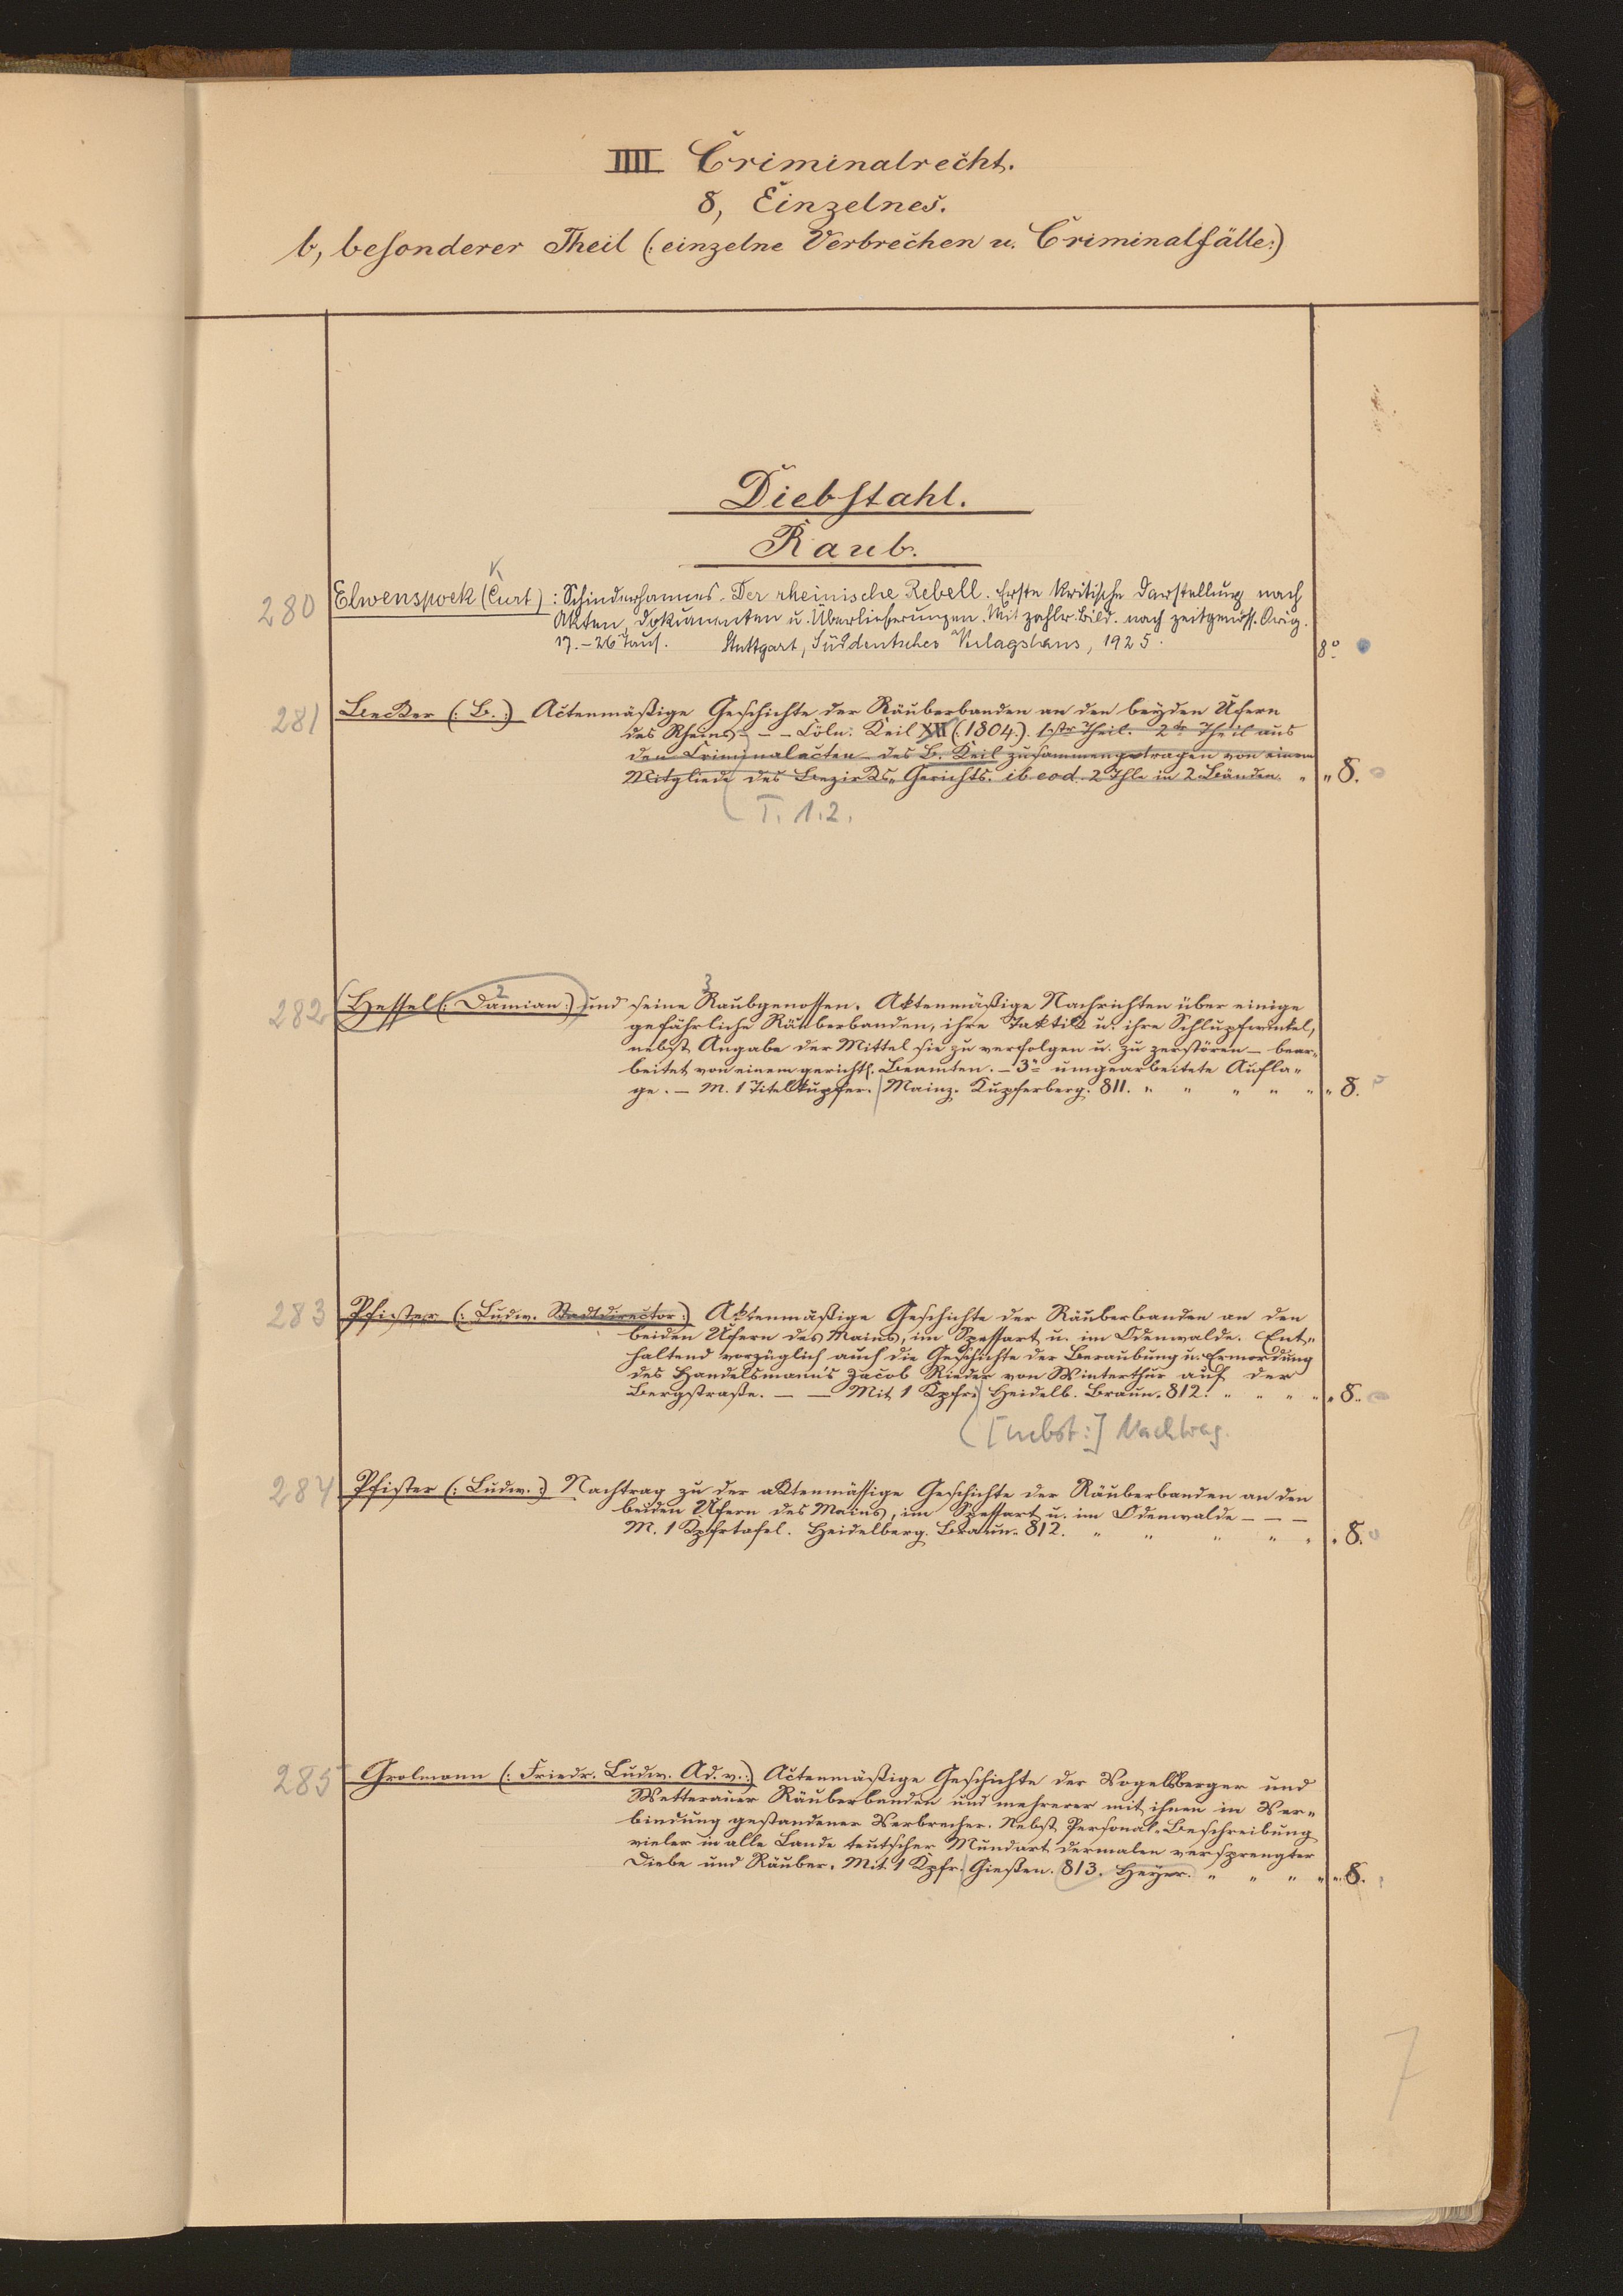 IIII Criminalrecht.
8, Einzelnes.
b, besonderer Theil (: einzelne Verbrechen u. Criminalfälle :)
Diebstahl.
Raub.
K
280 Elwenspoek (Curt) : Schinderhannes. Der rheinische Rebell. Erste kritische Darstellung nach
Akten, Dokumenten u. Überlieferungen. Mit zahlr. Bild. nach zeitgenöss. Orig.
17.–26 Taus. Stuttgart, Süddeutsches Verlagshaus, 1925. 8°
281 Becker (: B. :) Actenmäßige Geschichte der Räuberbanden an den beyden Ufern
des Rheins. – – – Cöln. Keil XII (: 1804 :). 1ster Theil. 2ter Theil aus
den Criminalacten des B. Keil zusammengetragen von einem
Mitgliede des Bezirks-Gerichts. ib eod. 2 Thle in 2 Bänden. " " 8.
T. 1.2.
2 3
282 Hessel (: Damian :) und seine Raubgenossen. Aktenmäßige Nachrichten über einige
gefährliche Räuberbanden, ihre Taktik u. ihre Schlupfwinkel,
nebst Angabe der Mittel sie zu verfolgen u. zu zerstören – bear-
beitet von einem gerichtl. Beamten. – 3e umgearbeitete Aufla-
ge. – M. 1 Titelkupfer. Mainz. Kupferberg. 811. " " " " " " 8.
283 Pfister (: Ludw. Stadtdirector :) Aktenmäßige Geschichte der Räuberbanden an den
beiden Ufern des Mains, im Spessart u. im Odenwalde. Ent-
haltend vorzüglich auch die Geschichte der Beraubung u. Ermordung
des Handelsmann's Jacob Rieder von Winterthur auf der
Bergstraße. – – Mit 1 Kpfr. Heidelb. Braun. 812. " " " " " 8.
[nebst:] Nachtrag.
284 Pfister (: Ludw. :) Nachtrag zu der aktenmässige Geschichte der Räuberbanden an den
beiden Ufern des Mains, im Spessart u. im Odenwalde – – –
M. 1 Kpfrtafel. Heidelberg. Braun. 812. " " " " " " 8.
285 Grolmann (: Friedr. Ludw. Ad. v. :) Actenmäßige Geschichte der Vogelsberger und
Wetterauer Räuberbanden und mehrerer mit ihnen in Ver-
bindung gestandener Verbrecher. Nebst Personal-Beschreibung
vieler in alle Lande teutscher Mundart dermalen versprengter
Diebe und Räuber. Mit 1 Kpfr. Gießen. 813. Heyer. " " " " " 8.
7